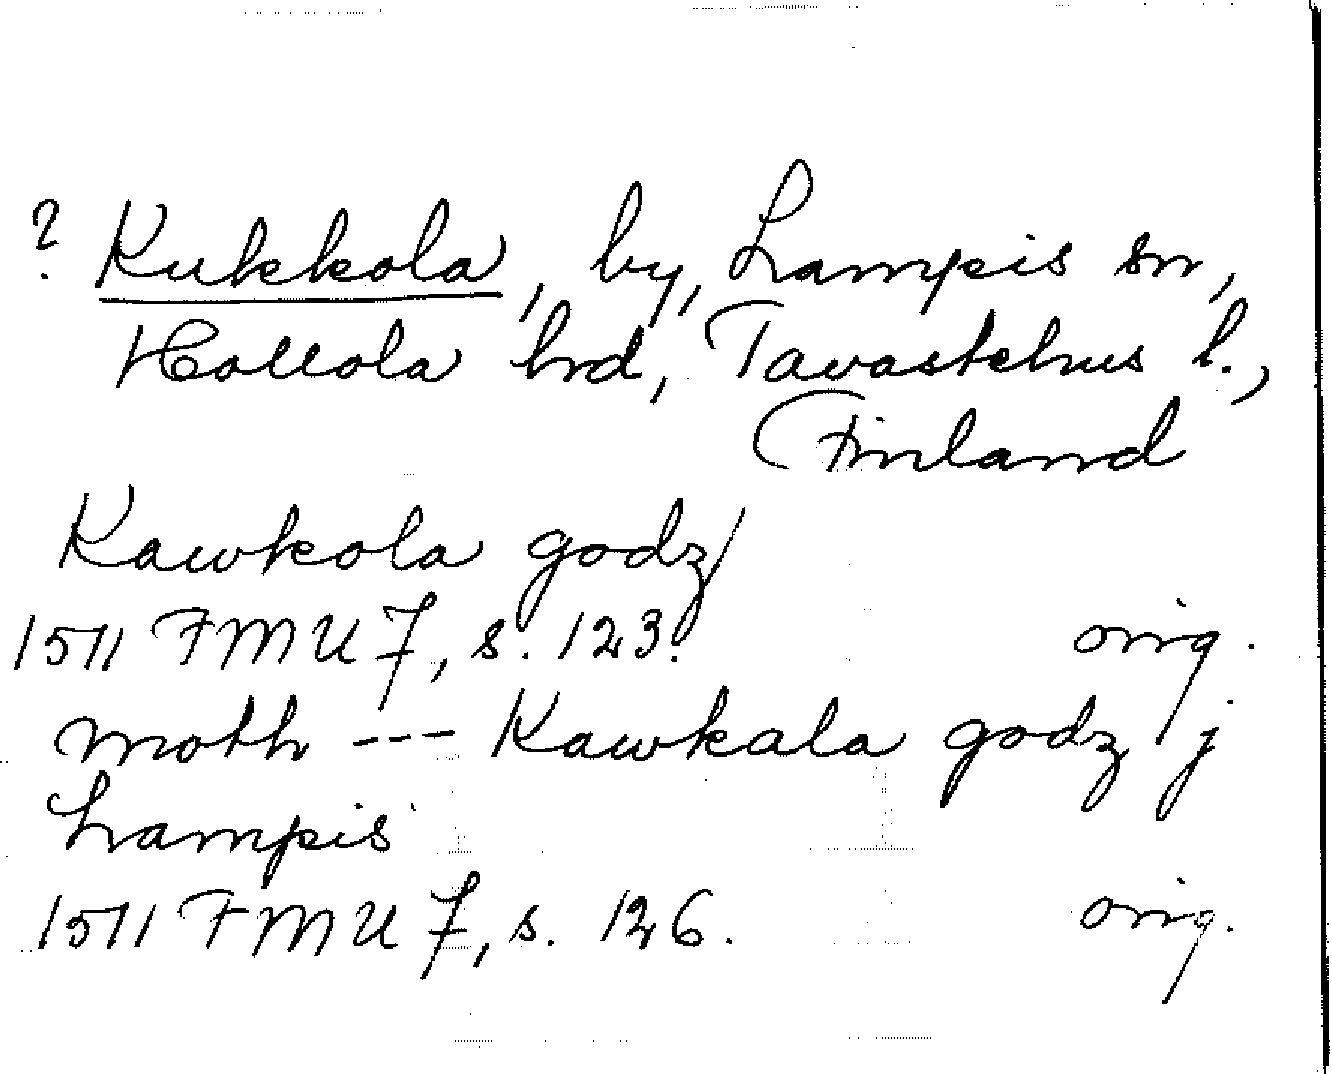 ? Kukkola, by, Lampis sn,
Hollola hrd, Tavastehus l.,
Finland
Kawkola godz
1511 FMU 7, s. 123. orig.
moth --- Kawkala godz j
Lampis
1511 FMU 7, s. 126. orig.